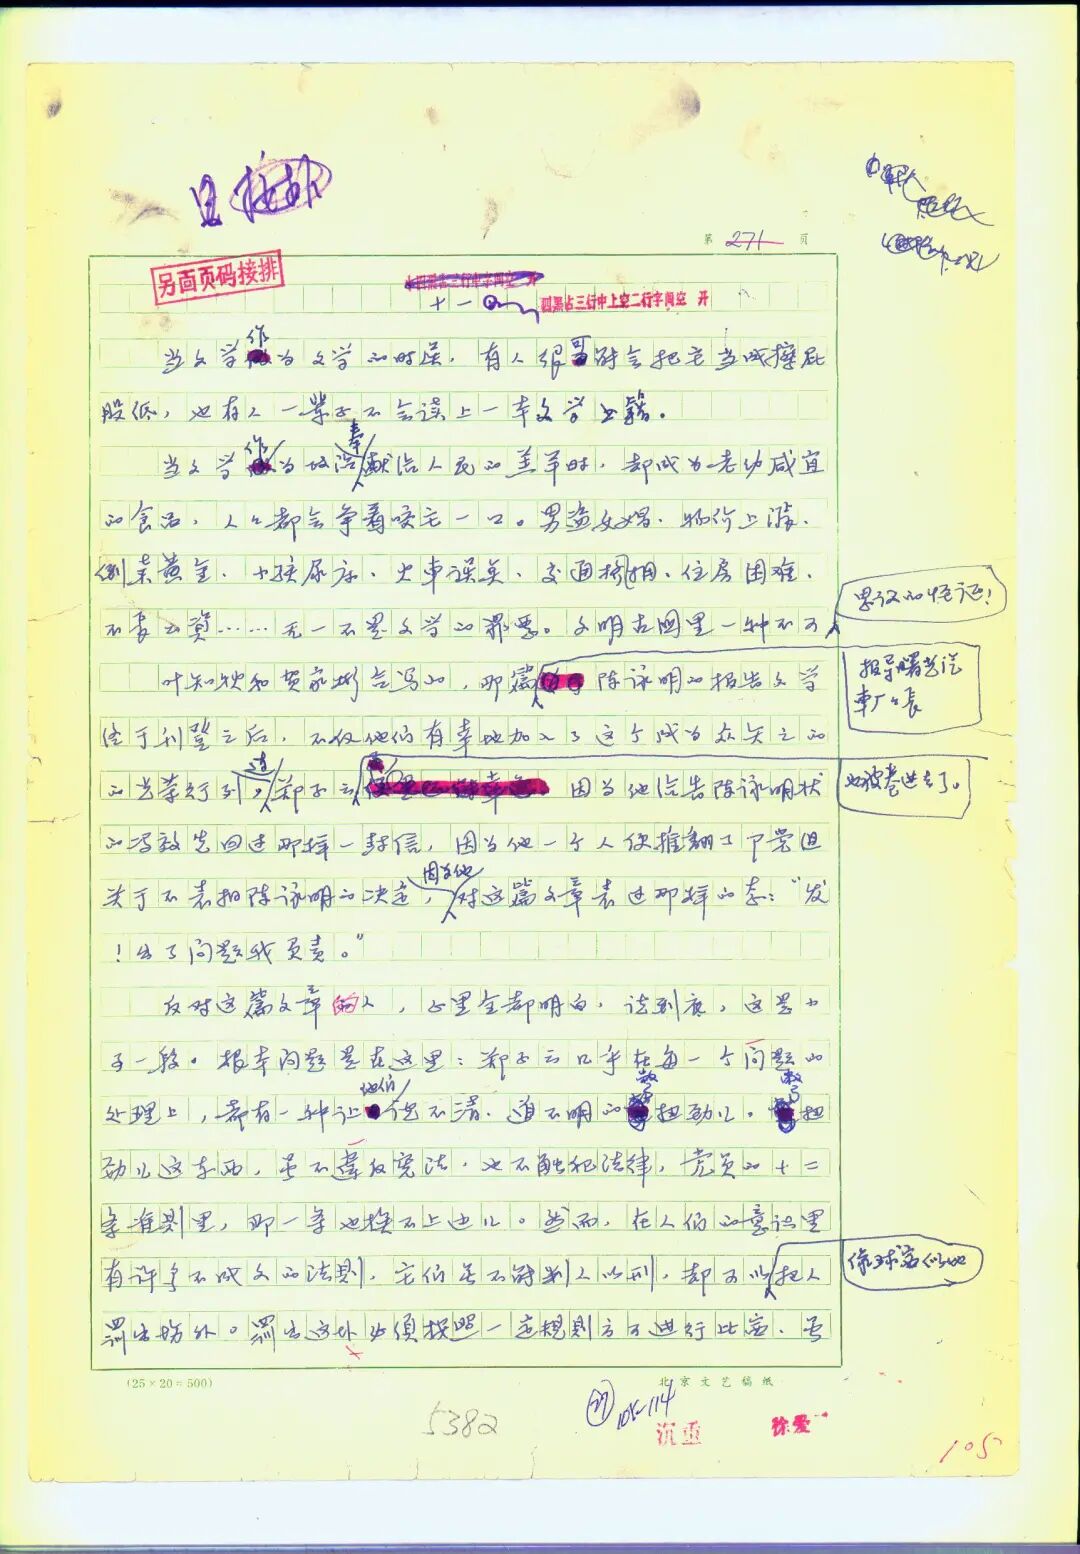 第 271 页
另面页码接排
十一
四黑占三行中上空二行字间空 开
当文学作为文学的时候，有人很可能会把它当成擦屁
股纸，也有人一辈子不会读上一本文学书籍。
当文学作为奉献给人民的羔羊时，却成为老幼咸宜
的食品，人人都会争着咬它一口。男盗女娼、物价上涨、
倒卖黄金、小孩尿床、火车误点、交通拥挤、住房困难、
不长工资……无一不是文学的罪恶。文明古国里一种不可
思议的怪症！
叶知秋和贺家彬合写的，那篇报导曙光汽车厂厂长陈咏明的报告文学
终于刊登之后，不仅他们有幸地加入了这个成为众矢之的
的光荣行列，连郑子云也被卷进去了。因为他给告陈咏明状
的冯效先回过那样一封信，因为他一个人便推翻了部党组
关于不表扬陈咏明的决定，因为他对这篇文章表过那样的态：“发
！出了问题我负责。”
反对这篇文章的人，心里全都明白，说到底，这是小
子一段。根本问题是在这里：郑子云几乎在每一个问题的
处理上，都有一种让他们说不清、道不明的别扭劲儿。别扭
劲儿这东西，虽不违反宪法，也不触犯法律，党员的十二
条准则里，那一条也挨不上边儿。然而，在人们的意识里
有许多不成文的法则，它们虽不能判人以刑，却可以像踢球似地把人
罚出场外。罚出场外必须按照一定规则方可进行比赛，虽
(25×20=500)
北京文艺稿纸
5382
105-114
沉重
徐爱
105